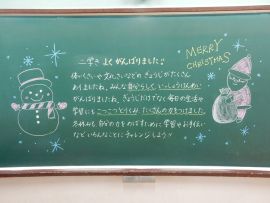 二学き よくがんばりました!!
体いくさいや文化さいなどのぎょうじがたくさん
ありましたね。みんな自分らしく、いっしょうけんめい
がんばりましたね。ぎょうじだけでなく毎日の生活や
学習にもこつこつとりくみ たくさんの力をつけました。
冬休みも、自分の力をのばすために学習やお手伝い
などいろんなことにチャレンジしよう!!
MERRY
CHRISTMAS